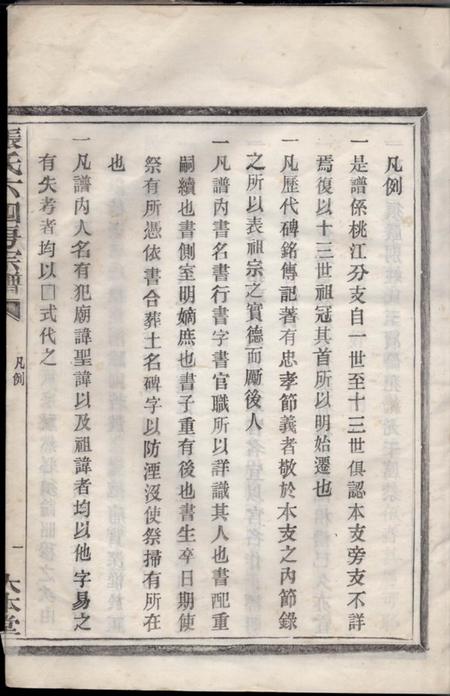 凡例
一是譜係桃江分支自一世至十三世俱認本支旁支不詳
焉復以十三世祖冠其首所以明始遷也
一凡歷代碑銘傳記著有忠孝節義者敬於本支之內節錄
之所以表祖宗之實德而勵後人
一凡譜內書名書行書字書官職所以詳識其人也書配重
嗣續也書側室明嫡庶也書子重有後也書生卒日期使
祭有所憑依書合葬土名碑字以防湮沒使祭掃有所在
也
一凡譜內人名有犯廟諱聖諱以及祖諱者均以他字易之
有失考者均以囗式代之
張氏六四房宗譜
凡例
一
大本堂